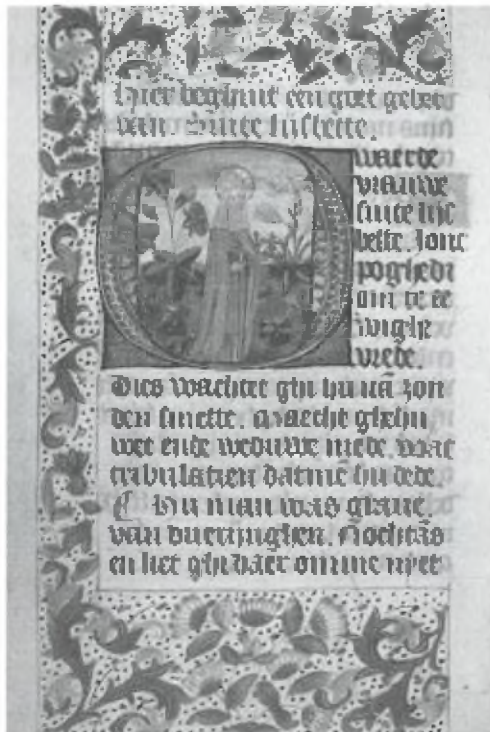 Hier beghint een goet gebet
van Sinte lijsbette.
O waerde
vrauwe
sinte lijs
bette. Jonc
poghedi
om te ee
wighe
vrede.
Dies wachtet ghi hu vā zon
den smette. Maecht ghehu
wet ende weduwe mede. wat
tribulatien datmē hu dede.
Hu man was graue.
van dueringhen. Nochtās
en liet ghi daer omme niet